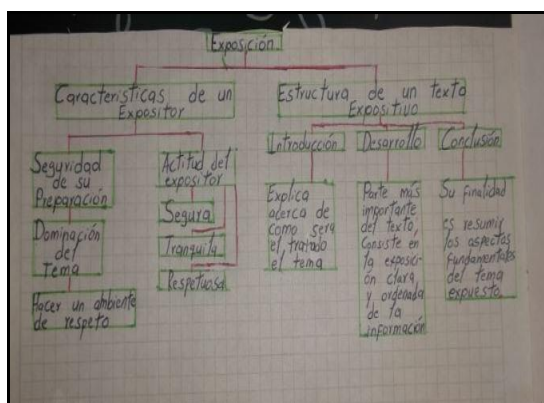 Exposición
Características de un
Expositor
Estructura de un texto
Expositivo
Seguridad
de su
Preparación
Dominación
del
Tema
Hacer un ambiente
de respeto
Actitud del
expositor
Segura
Tranquila
Respetuosa
Introducción
Explica
acerca de
como será
el tratado
el tema
Desarrollo
Parte más
importante
del texto,
Consiste en
la exposici
ón clara
y ordenada
de la
información
Conclusión
Su finalidad
es resumir
los aspectos
fundamentales
del tema
expuesto.